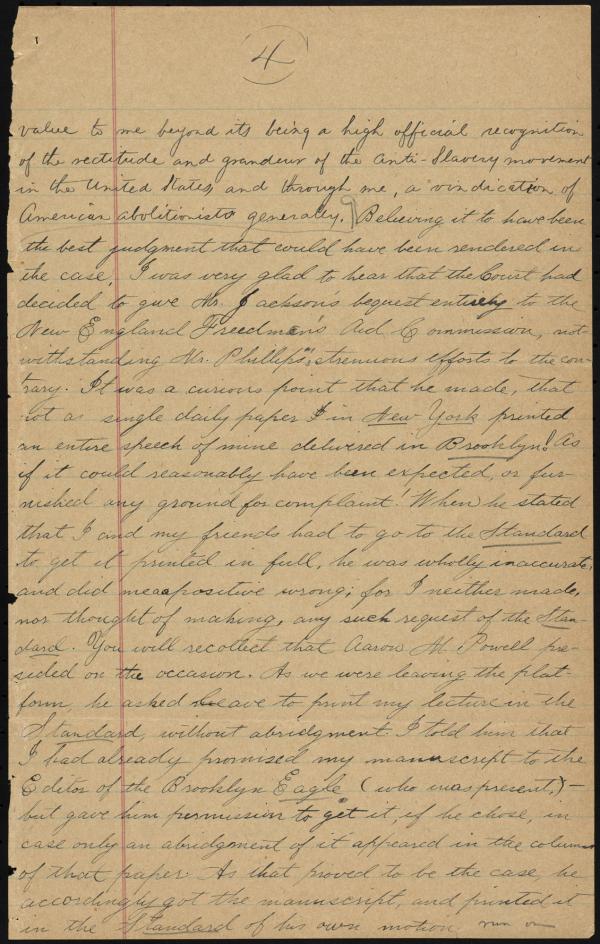 4
value to me beyond its being a high official recognition
of the rectitude and grandeur of the Anti-Slavery movement
in the United States, and through me, a vindication of
American abolitionists generally. Believing it to have been
the best judgment that could have been rendered in
the case, I was very glad to hear that the Court had
decided to give Mr. Jackson's bequest entirely to the
New England Freedmen's Aid Commission, not-
withstanding Mr. Phillips's strenuous efforts to the con-
trary. It was a curious point that he made, that
not a single daily paper in New York printed
an entire speech of mine delivered in Brooklyn! As
if it could reasonably have been expected, or fur-
nished any ground for complaint! When he stated
that I and my friends had to go to the Standard
to get it printed in full, he was wholly inaccurate,
and did me a positive wrong; for I neither made,
nor thought of making, any such request of the Stan-
dard. You will recollect that Aaron M. Powell pre-
sided on the occasion. As we were leaving the plat-
form, he asked leave to print my lecture in the
Standard, without abridgment. I told him that
I had already promised my manuscript to the
Editor of the Brooklyn Eagle (who was present,) —
but gave him permission to get it, if he chose, in
case only an abridgment of it appeared in the columns
of that paper. As that proved to be the case, he
accordingly got the manuscript, and printed it
in the Standard of his own motion run on